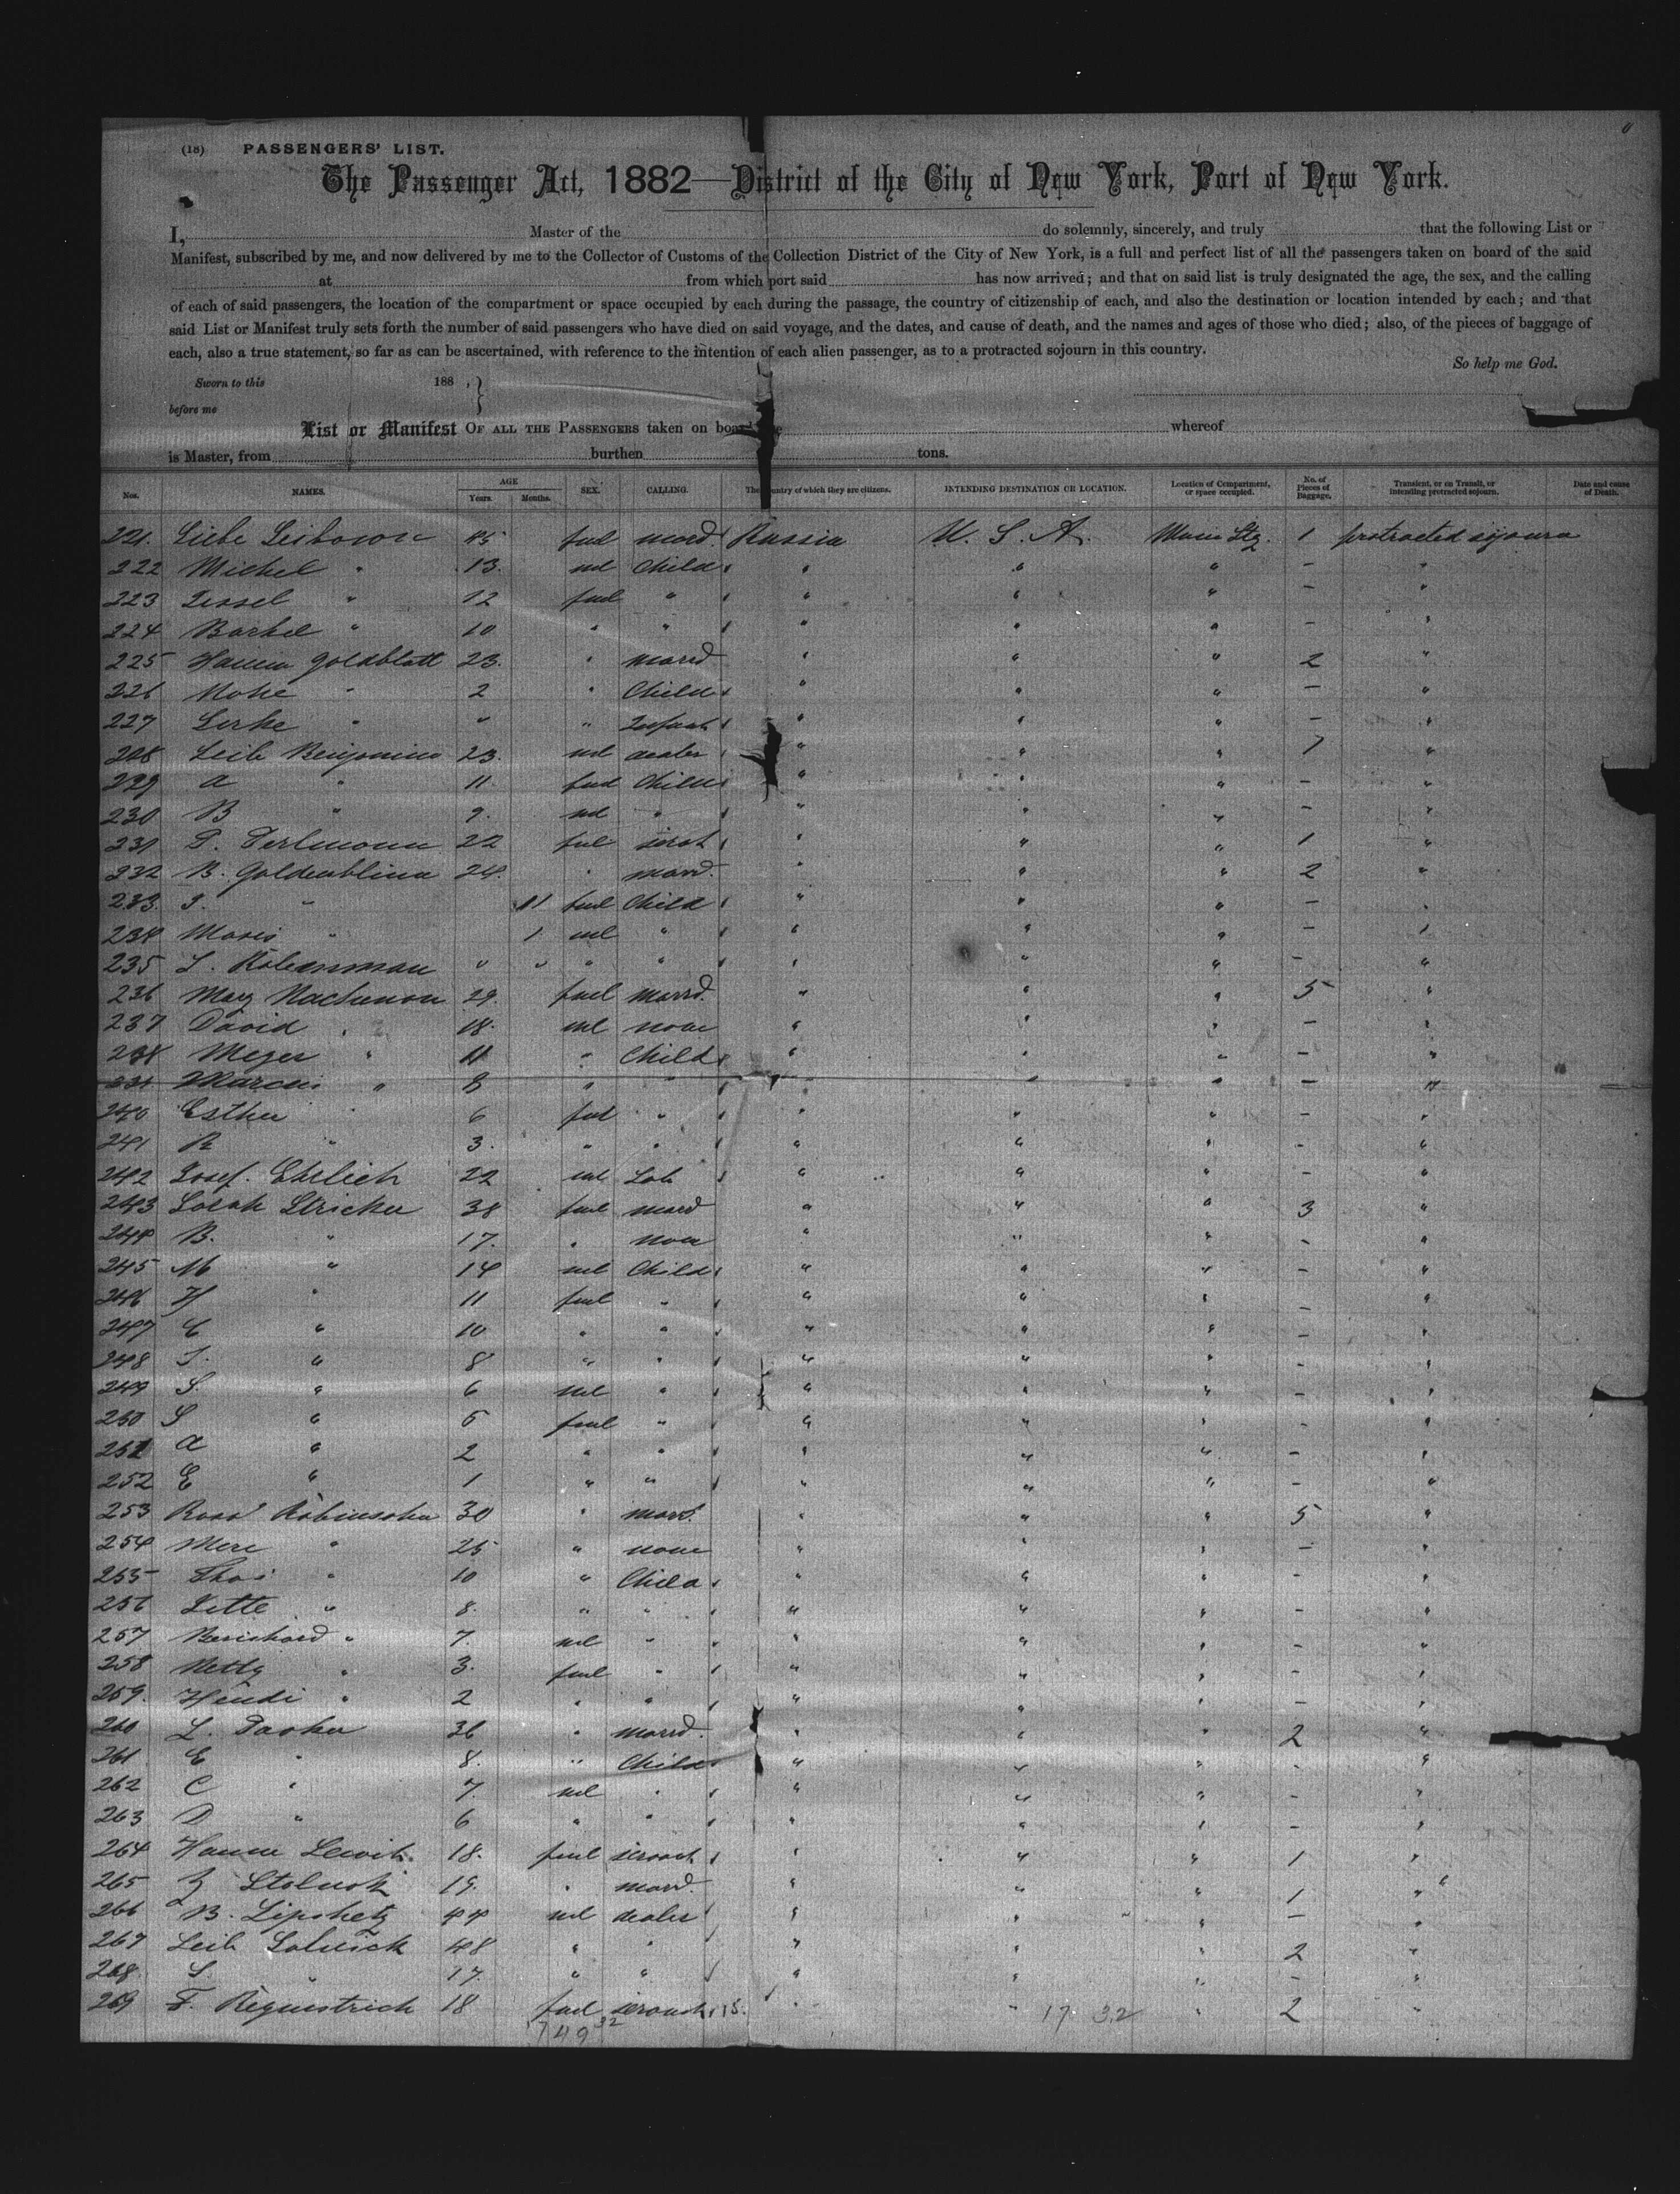 (18) PASSENGERS' LIST.
The Passenger Act, 1882—District of the City of New York, Port of New York.
I, Master of the do solemnly, sincerely, and truly that the following List or
Manifest, subscribed by me, and now delivered by me to the Collector of Customs of the Collection District of the City of New York, is a full and perfect list of all the passengers taken on board of the said
at from which port said has now arrived; and that on said list is truly designated the age, the sex, and the calling
of each of said passengers, the location of the compartment or space occupied by each during the passage, the country of citizenship of each, and also the destination or location intended by each; and that
said List or Manifest truly sets forth the number of said passengers who have died on said voyage, and the dates, and cause of death, and the names and ages of those who died; also, of the pieces of baggage of
each, also a true statement, so far as can be ascertained, with reference to the intention of each alien passenger, as to a protracted sojourn in this country.
So help me God.
Sworn to this 188 , }
before me
List or Manifest OF ALL THE PASSENGERS taken on board whereof
is Master, from burthen tons.
Nos. NAMES. AGE Years. Months. SEX. CALLING. The country of which they are citizens. INTENDING DESTINATION OR LOCATION. Location of Compartment, or space occupied. No. of Pieces of Baggage. Transient, or on Transit, or intending protracted sojourn. Date and cause of Death.
221. Liebe 45 fml marrd. Russia U. S. A. Stg. 1 protracted sojourn
222 Michel " 13. ml Child " " " - "
223 " 12 fml " " " " - "
224 " 10 " " " " " - "
225 Hanna Goldblatt 23. " marrd " " " 2 "
226 " 2 " Child " " " - "
227 " " " Infant " " " - "
228 Leib Benjamin 23. ml dealer " " " 1 "
229 A " 11. fml Child " " " - "
230 B " 9. ml " " " " - "
231 P. Perlmann 22 fml " " " 1 "
232 B. 24. " marrd. " " " 2 "
233. " 11 fml Child " " " - "
234 Moses " 1 ml " " " " - "
235 " " " " " " " - "
236 Mary 29. fml Marrd. " " " 5 "
237 David " 18. ml none " " " - "
238 Meyer " 11 " Child " " " - "
" 8 " " " " " - "
240 Esther " 6 fml " " " " - "
241 R " 3. " " " " " - "
242 Josef. Ehrlich 22 ml Lab " " " - "
243 Sarah Stricker 38 fml marrd " " " 3 "
244 B. " 17. " none " " " - "
245 M " 14 ml Child " " " - "
246 H " 11 fml " " " " - "
247 E " 10 " " " " " - "
248 " 8 " " " " " - "
249 S. " 6 ml " " " " - "
250 S " 5 fml " " " " - "
251 A " 2 " " " " " - "
252 E " 1 " " " " " - "
253 Robinsohn 30 " marrd. " " " 5 "
254 Mere " 25 " none " " " - "
255 " 10 " Child " " " - "
256 " 8. " " " " " - "
257 " 7. ml " " " " - "
258 Netty " 3. fml " " " " - "
259. Hendi " 2 " " " " " - "
260 36 " marrd. " " " 2 "
261 E " 8. " Child " " " - "
262 C " 7. ml " " " " - "
263 D " 6 " " " " " - "
264 18. fml servant " " " 1 "
265 19. " marrd. " " " 1 "
266 B. Lipshetz 44 ml dealer " " " - "
267 Leib 48 " " " " " 2 "
268. S. " 17. " " " " " - "
269 18 fml servant " " " 2 "
749 32 17 32